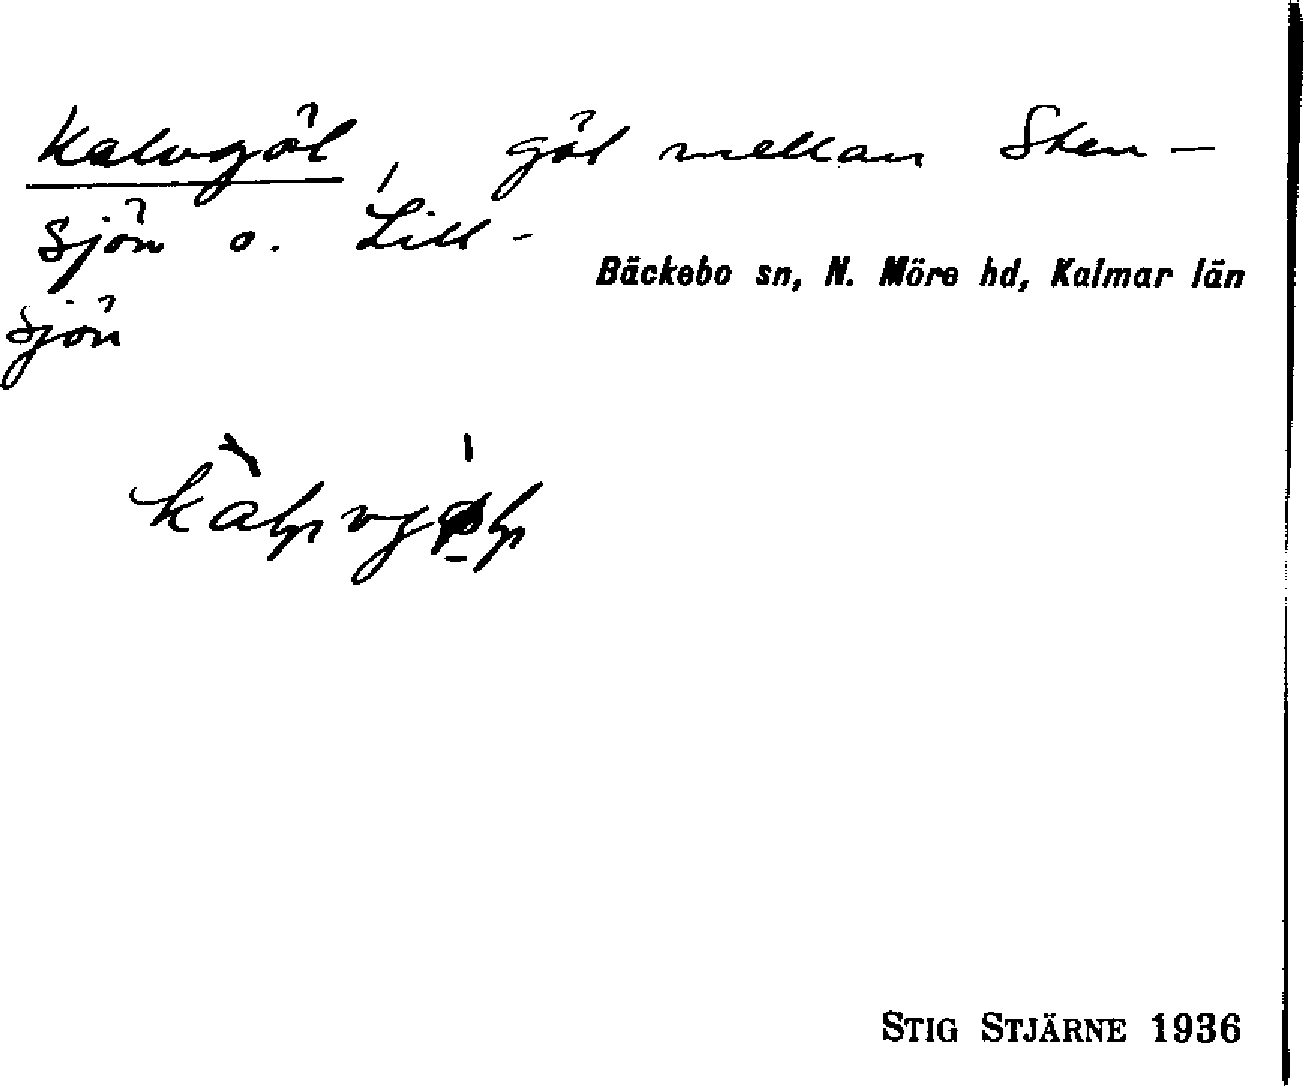 Kalvgöl, göl mellan Sten-
sjön o. Lill-
Bäckebo sn, N. Möre hd, Kalmar län
sjön
STIG STJÄRNE 1936